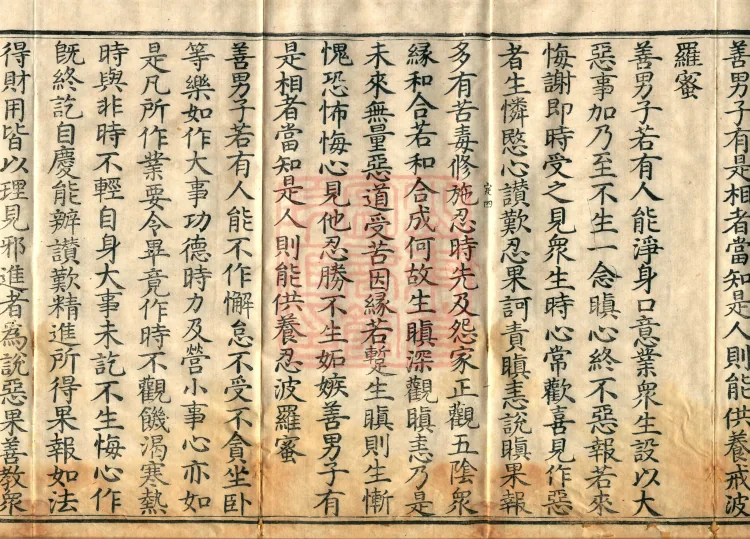 善男子有是相者當知是人則能供養戒波
羅蜜
善男子若有人能淨身口意業衆生設以大
惡事加乃至不生一念瞋心終不惡報若來
悔謝即時受之見衆生時心常歡喜見作惡
者生憐愍心讚歎忍果訶責瞋恚説瞋果報
多有苦毒修施忍時先及怨家正觀五陰衆
定四
緣和合若和合成何故生瞋深觀瞋恚乃是
未來無量惡道受苦因緣若蹔生瞋則生慚
愧恐怖悔心見他忍勝不生妬嫉善男子有
是相者當知是人則能供養忍波羅蜜
善男子若有人能不作懈怠不受不貪坐卧
等樂如作大事功德時力及營小事心亦如
是凡所作業要令畢竟作時不觀饑渴寒熱
時與非時不輕自身大事未訖不生悔心作
旣終訖自慶能辨讚歎精進所得果報如法
得財用皆以理見邪進者爲說惡果善教衆